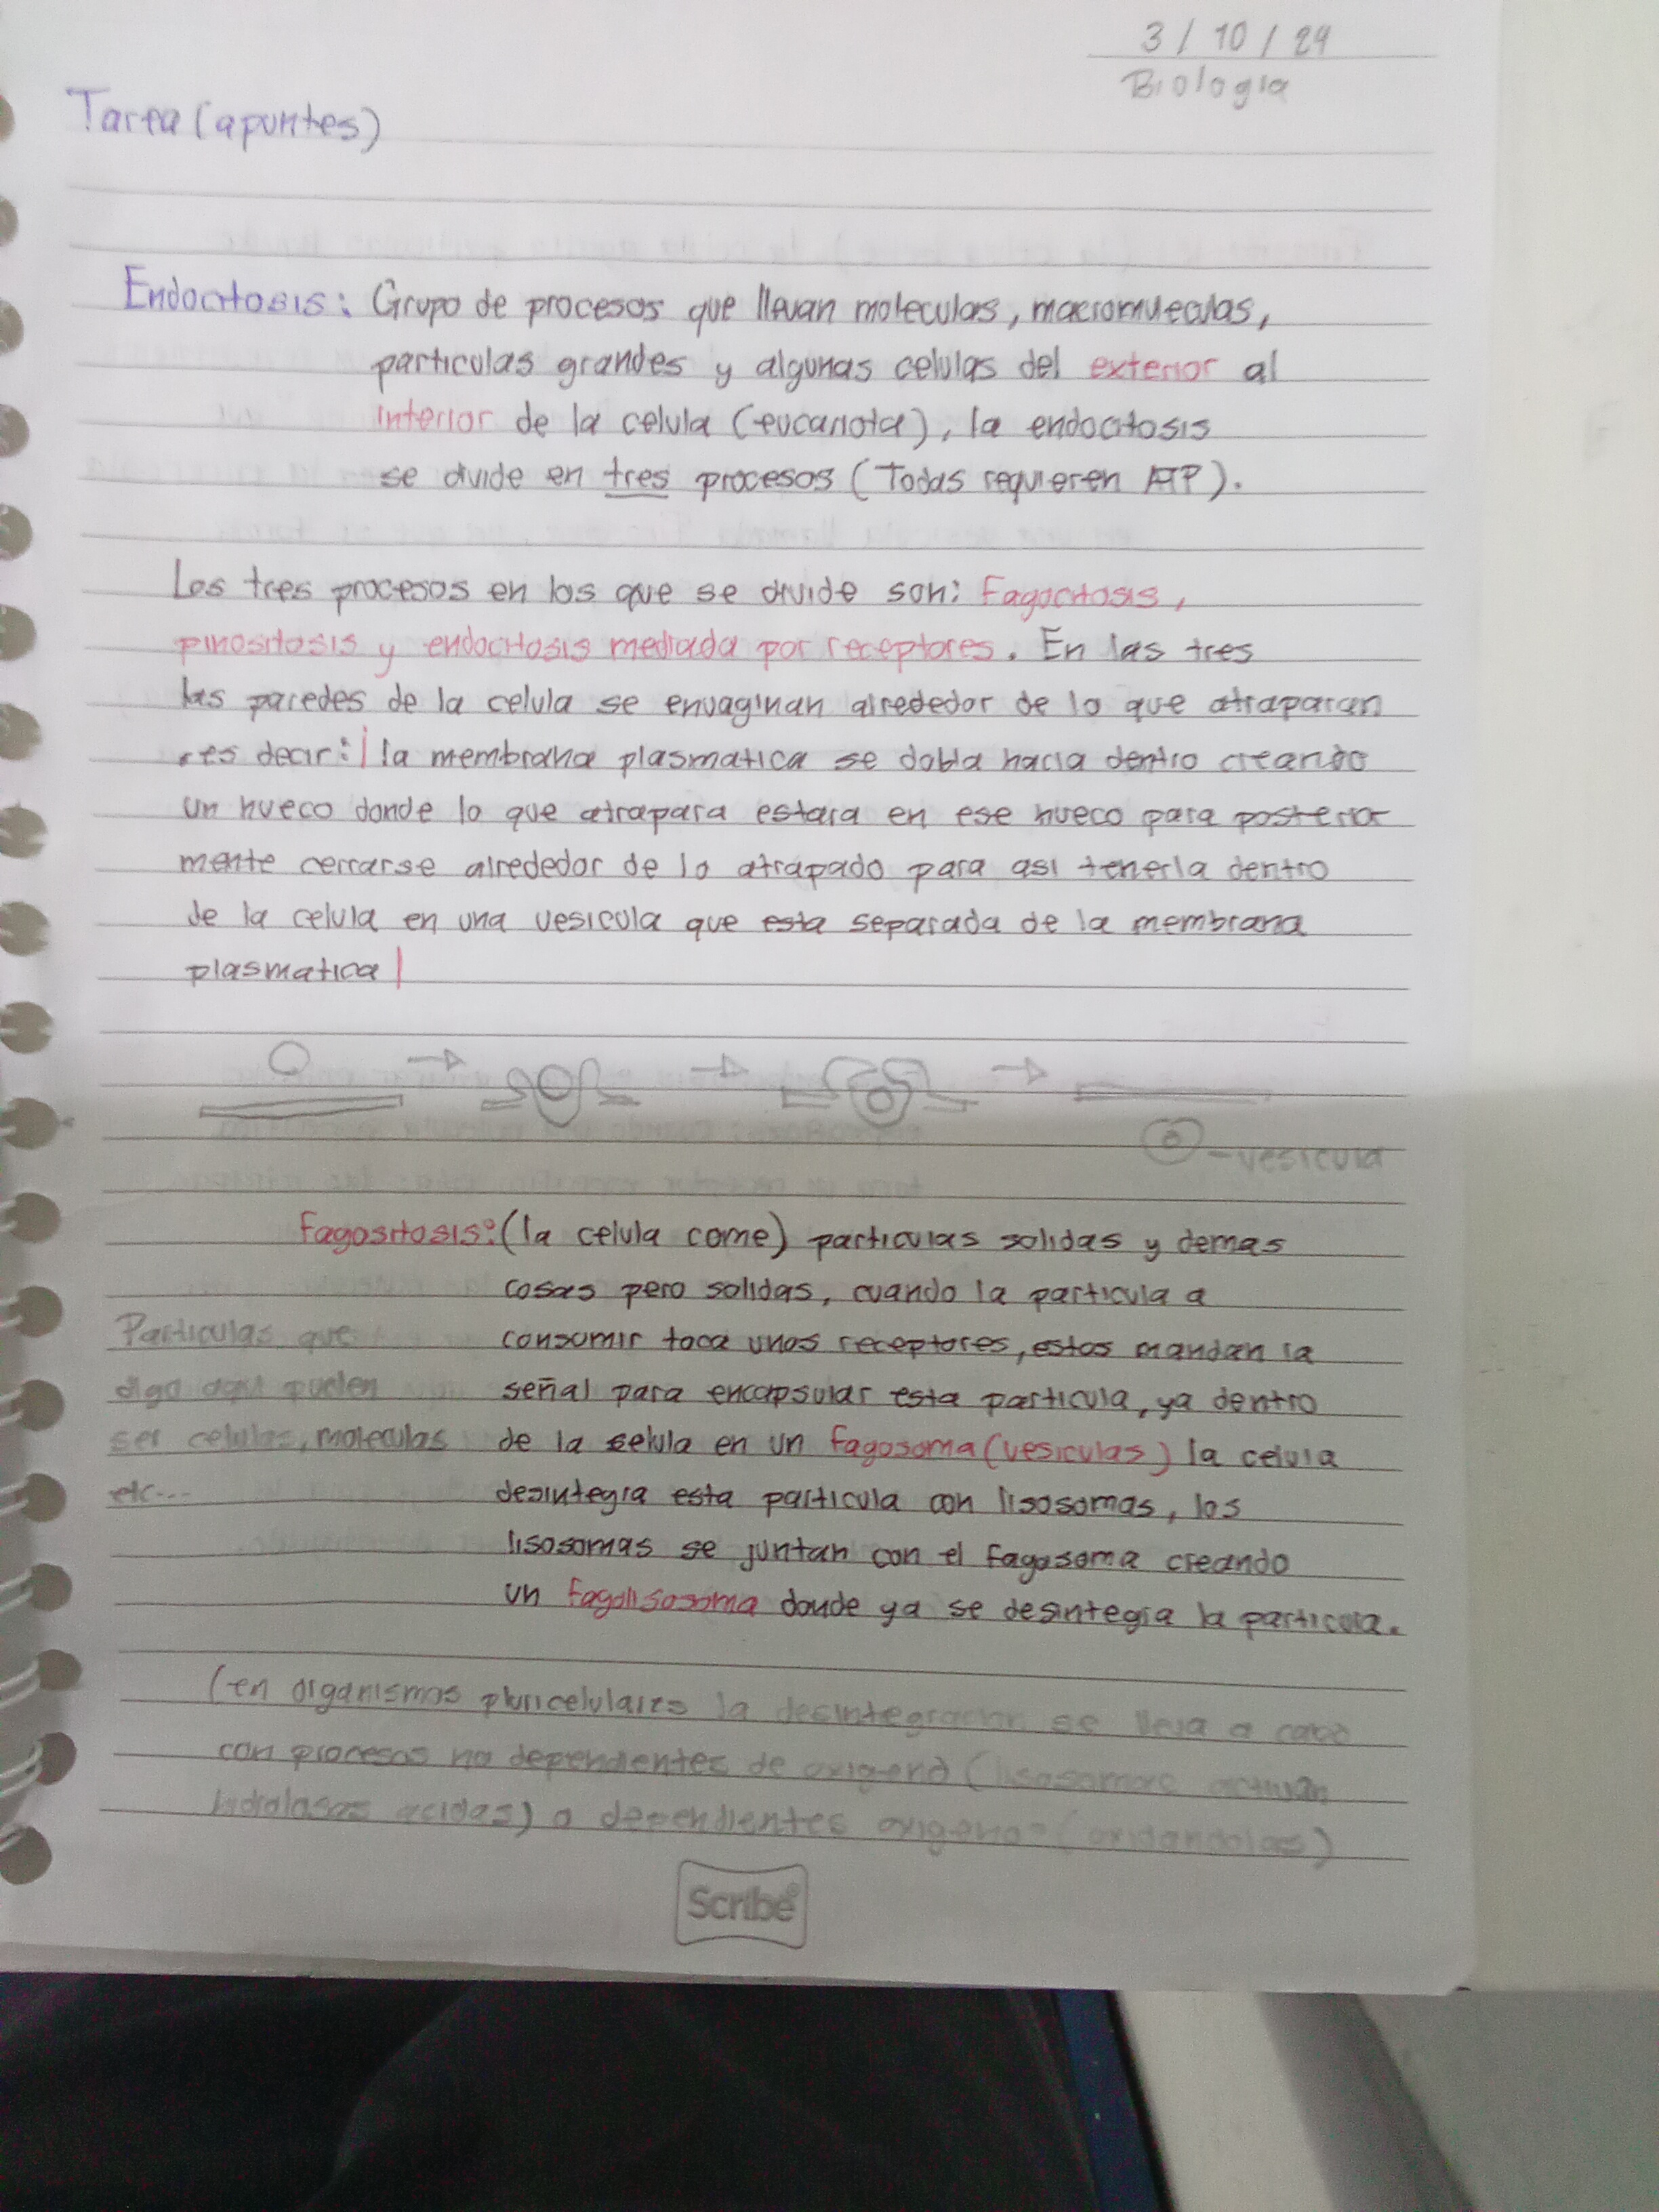 3 / 10 / 24
Biologia
Tarea (apuntes)
Endocitosis: Grupo de procesos que llevan moleculas, macromueculas,
particulas grandes y algunas celulas del exterior al
interior de la celula (eucariota), la endocitosis
se divide en tres procesos (Todas requieren ATP).
Los tres procesos en los que se divide son: Fagocitosis,
pinositosis y endocitosis mediada por receptores. En las tres
las paredes de la celula se envaginan alrededor de lo que atraparan
es decir: | la membrana plasmatica se dobla hacia dentro creando
un hueco donde lo que atrapara estara en ese hueco para posterior
mente cerrarse alrededor de lo atrapado para asi tenerla dentro
de la celula en una vesicula que esta separada de la membrana
plasmatica |
- vesicula
Fagositosis: (la celula come) particulas solidas y demas
cosas pero solidas, cuando la particula a
consumir toca unos receptores, estos mandan la
señal para encapsular esta particula, ya dentro
de la selula en un fagosoma (vesiculas) la celula
desintegra esta particula con lisosomas, los
lisosomas se juntan con el fagosoma creando
un fagolisosoma donde ya se desintegra la particula.
Particulas que
digo aqui pueden
ser celulas, moleculas
etc...
(en organismos pluricelulares la desintegracion se lleva a cabo
con procesos no dependientes de oxigeno (lisosomas activan
hidrolasas acidas) o dependientes oxigeno (oxidandolas)
Scribe®